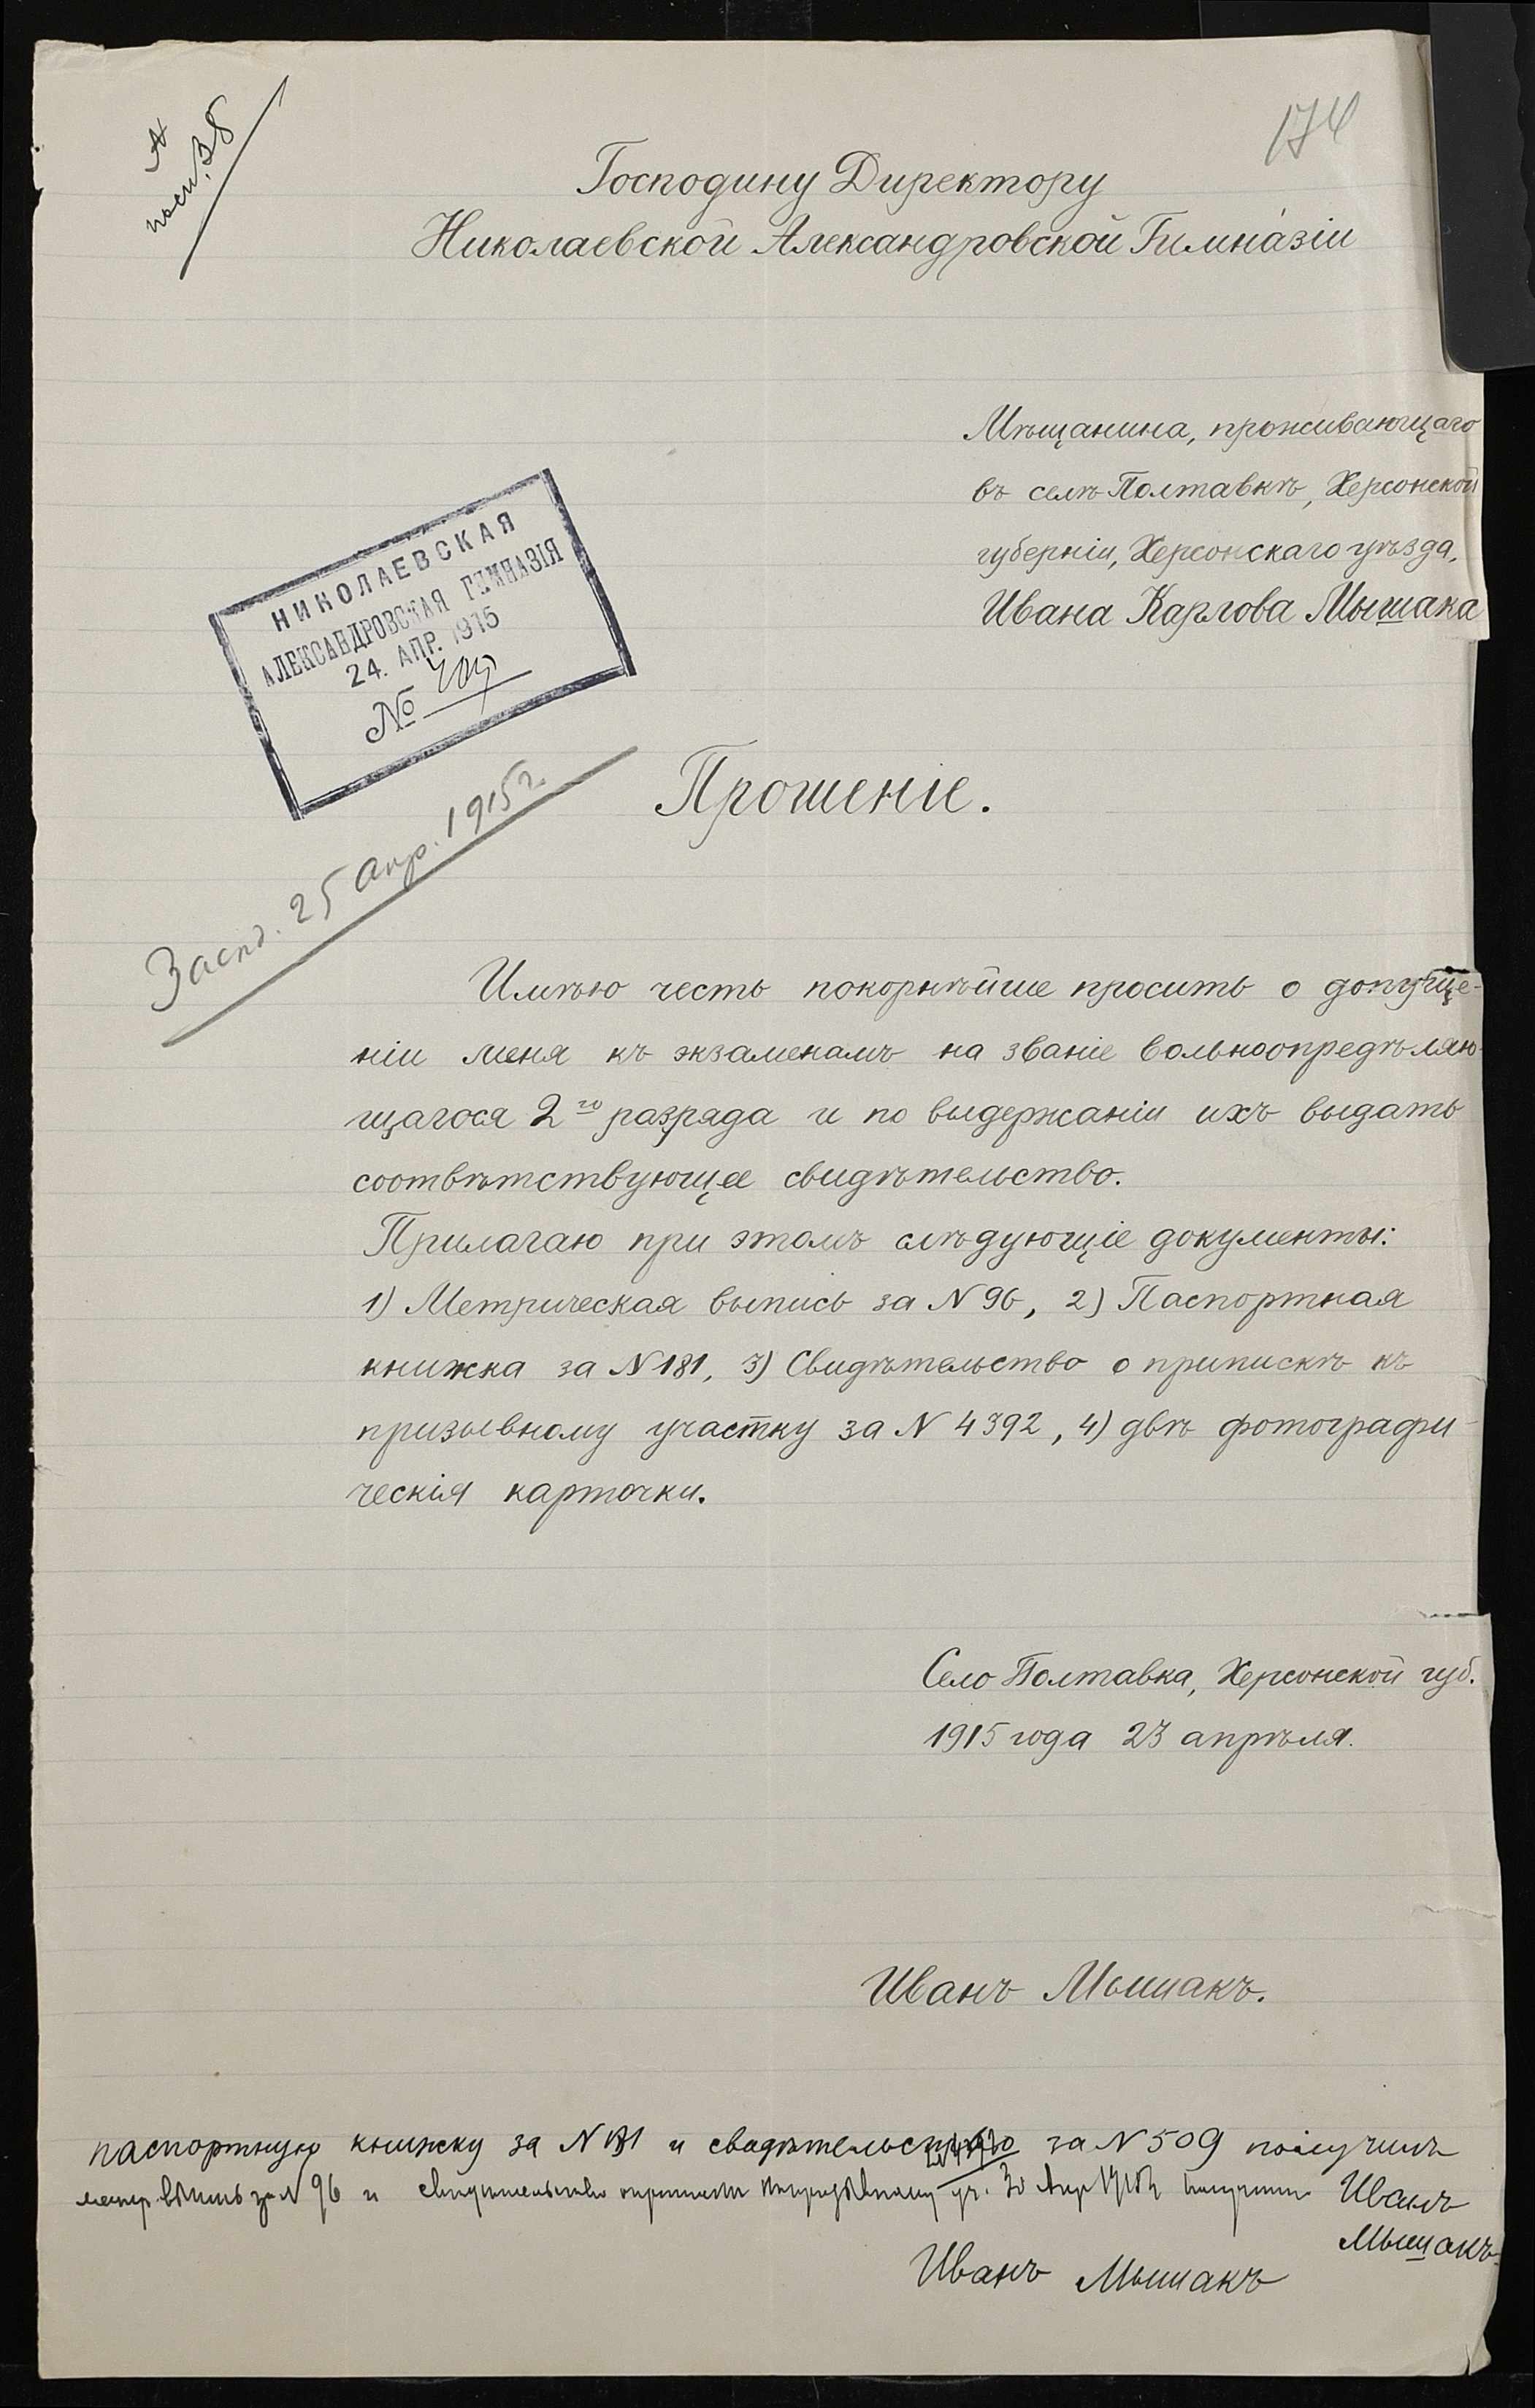 174
А
Господину Директору
Николаевской Александровской Гимназіи
Мѣщанина, проживающаго
въ селѣ Полтавкѣ, Херсонской
губерніи, Херсонскаго уѣзда,
Ивана Карлова Мышака
НИКОЛАЕВСКАЯ
АЛЕКСАНДРОВСКАЯ ГИМНАЗІЯ
24. АПР. 1915
№
Прошеніе.
25 апр. 1915 г.
Имѣю честь покорнѣйше просить о допуще-
ніи меня къ экзаменамъ на званіе вольноопредѣляю-
щагося 2го разряда и по выдержаніи ихъ выдать
соотвѣтствующее свидѣтельство.
Прилагаю при этомъ слѣдующіе документы:
1) Метрическая выпись за N 96, 2) Паспортная
книжка за N 181, 3) Свидѣтельство о припискѣ къ
призывному участку за N 4392, 4) двѣ фотографи-
ческія карточки.
Село Полтавка, Херсонской губ.
1915 года 23 апрѣля.
Иванъ Мышакъ.
паспортную книжку за N 181 и свидѣтельство за N 509 получилъ
Иванъ
Мышакъ.
метр. выпись за N 96 и свидѣтельство
Иванъ Мышакъ